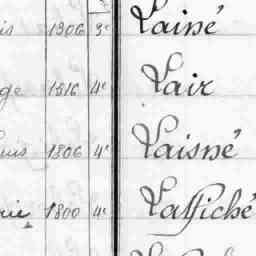 is 1806 3e Lainé
ge 1816 4e Lair
uis 1806 4e Laisné
rie 1800 4e Laffiché